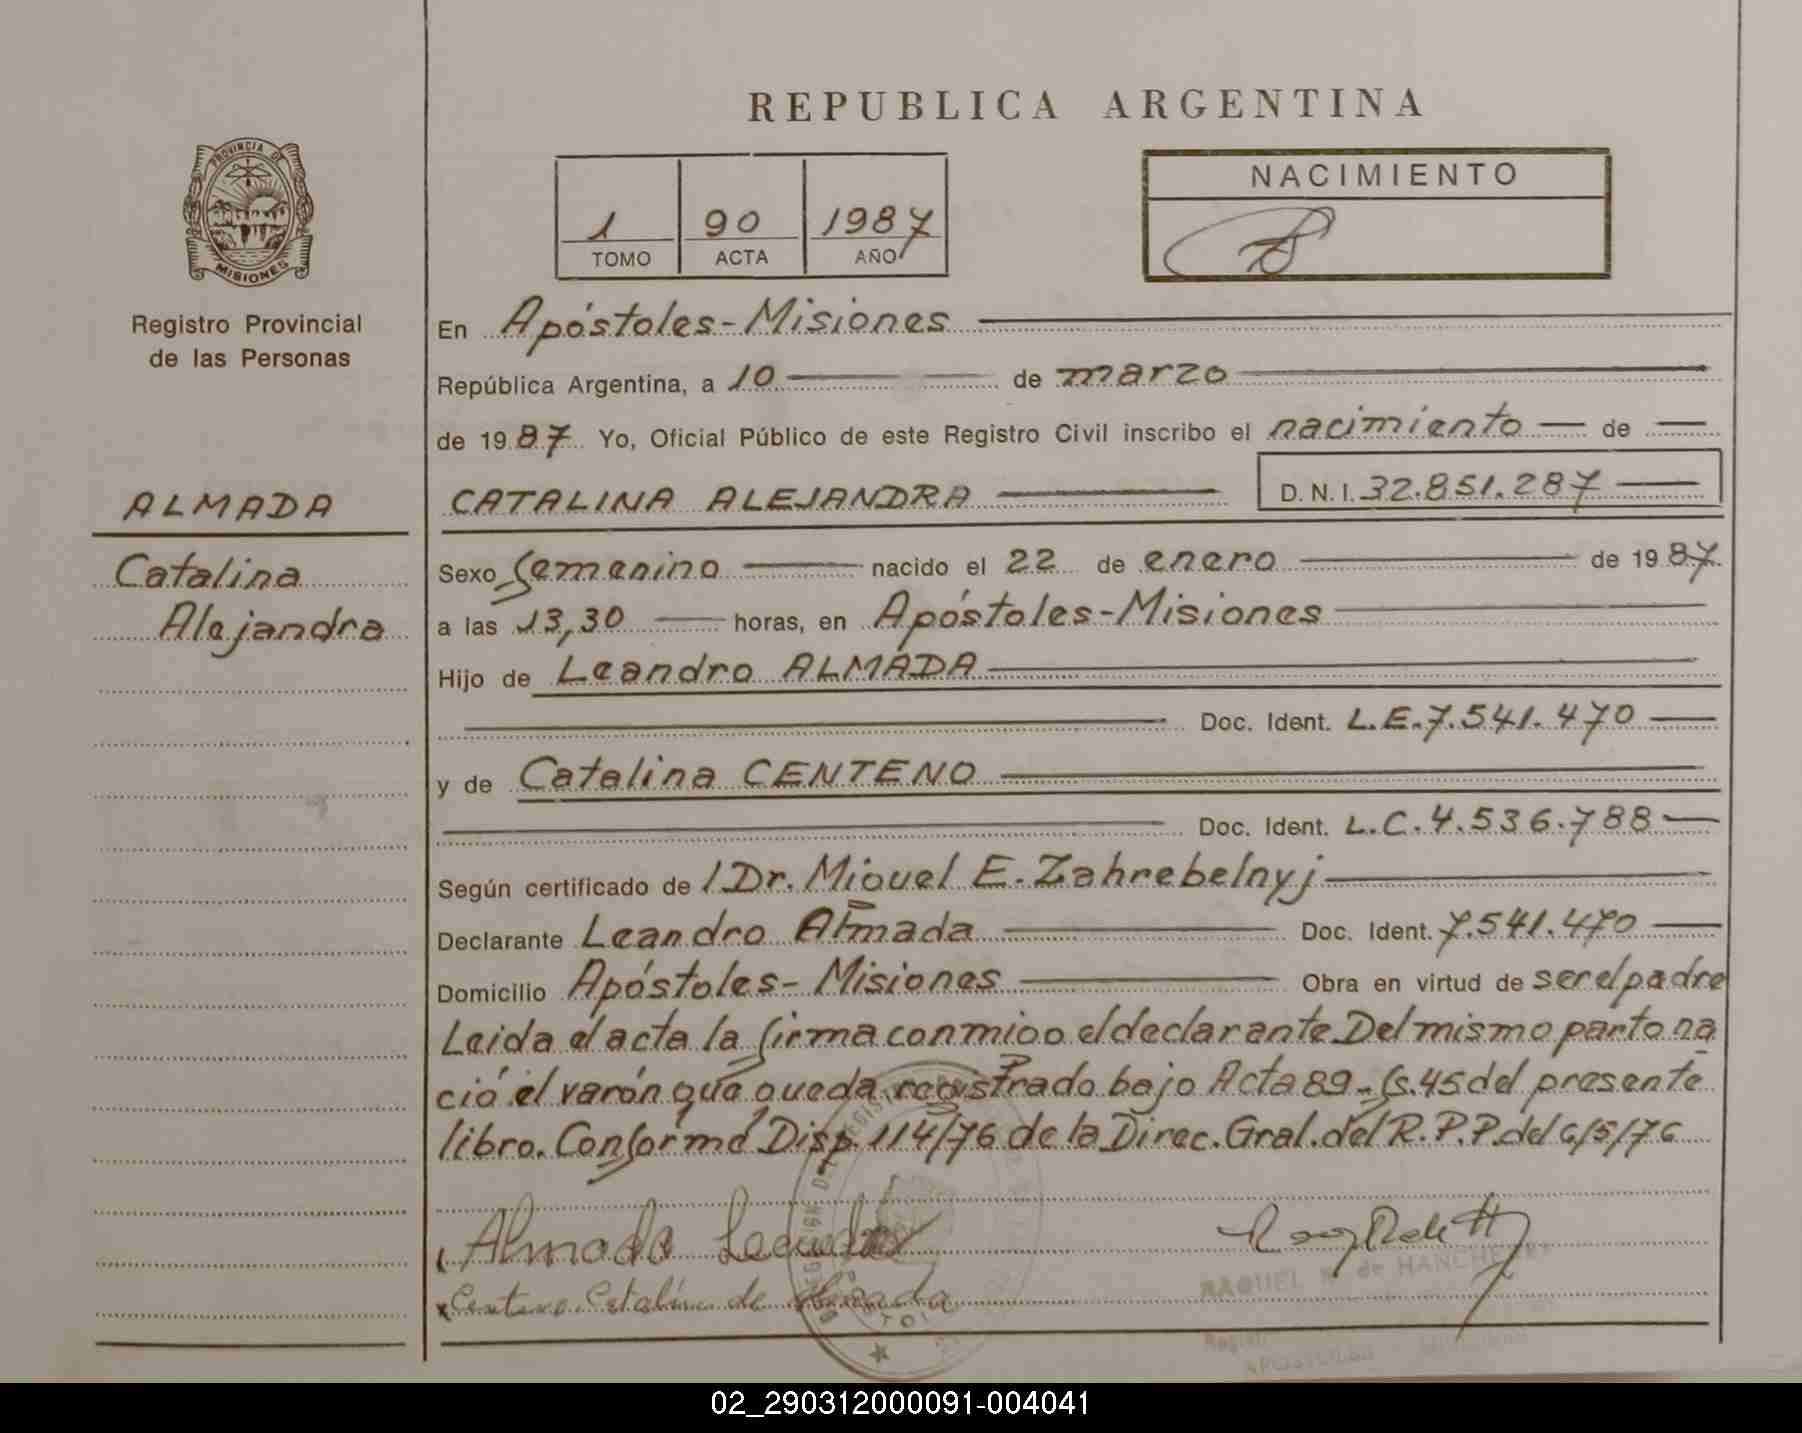 REPUBLICA ARGENTINA
PROVINCIA DE
MISIONES
Registro Provincial
de las Personas
1 90 1987
TOMO ACTA AÑO
NACIMIENTO
En Apóstoles-Misiones
República Argentina, a 10 de marzo
de 1987 Yo, Oficial Público de este Registro Civil inscribo el nacimiento de
ALMADA
Catalina
Alejandra
CATALINA ALEJANDRA D.N.I. 32.851.287
Sexo femenino nacido el 22 de enero de 1987.
a las 13,30 horas, en Apóstoles-Misiones
Hijo de Leandro ALMADA
Doc. Ident. L.E.7.541.470
y de Catalina CENTENO
Doc. Ident. L.C.4.536.788
Según certificado de / Dr. Miguel E. Zahrebelnyj
Declarante Leandro Almada Doc. Ident. 7.541.470
Domicilio Apóstoles-Misiones Obra en virtud de ser el padre
Leida el acta la firma conmigo el declarante. Del mismo parto na
ció el varón que queda registrado bajo Acta 89-fs.45 del presente
libro. Conforme Disp. 114/76 de la Direc. Gral. del R.P.P. del 6/5/76
Almada Leandro
Centeno Catalina de Almada
RAQUEL de
APOSTOLES
02_290312000091-004041